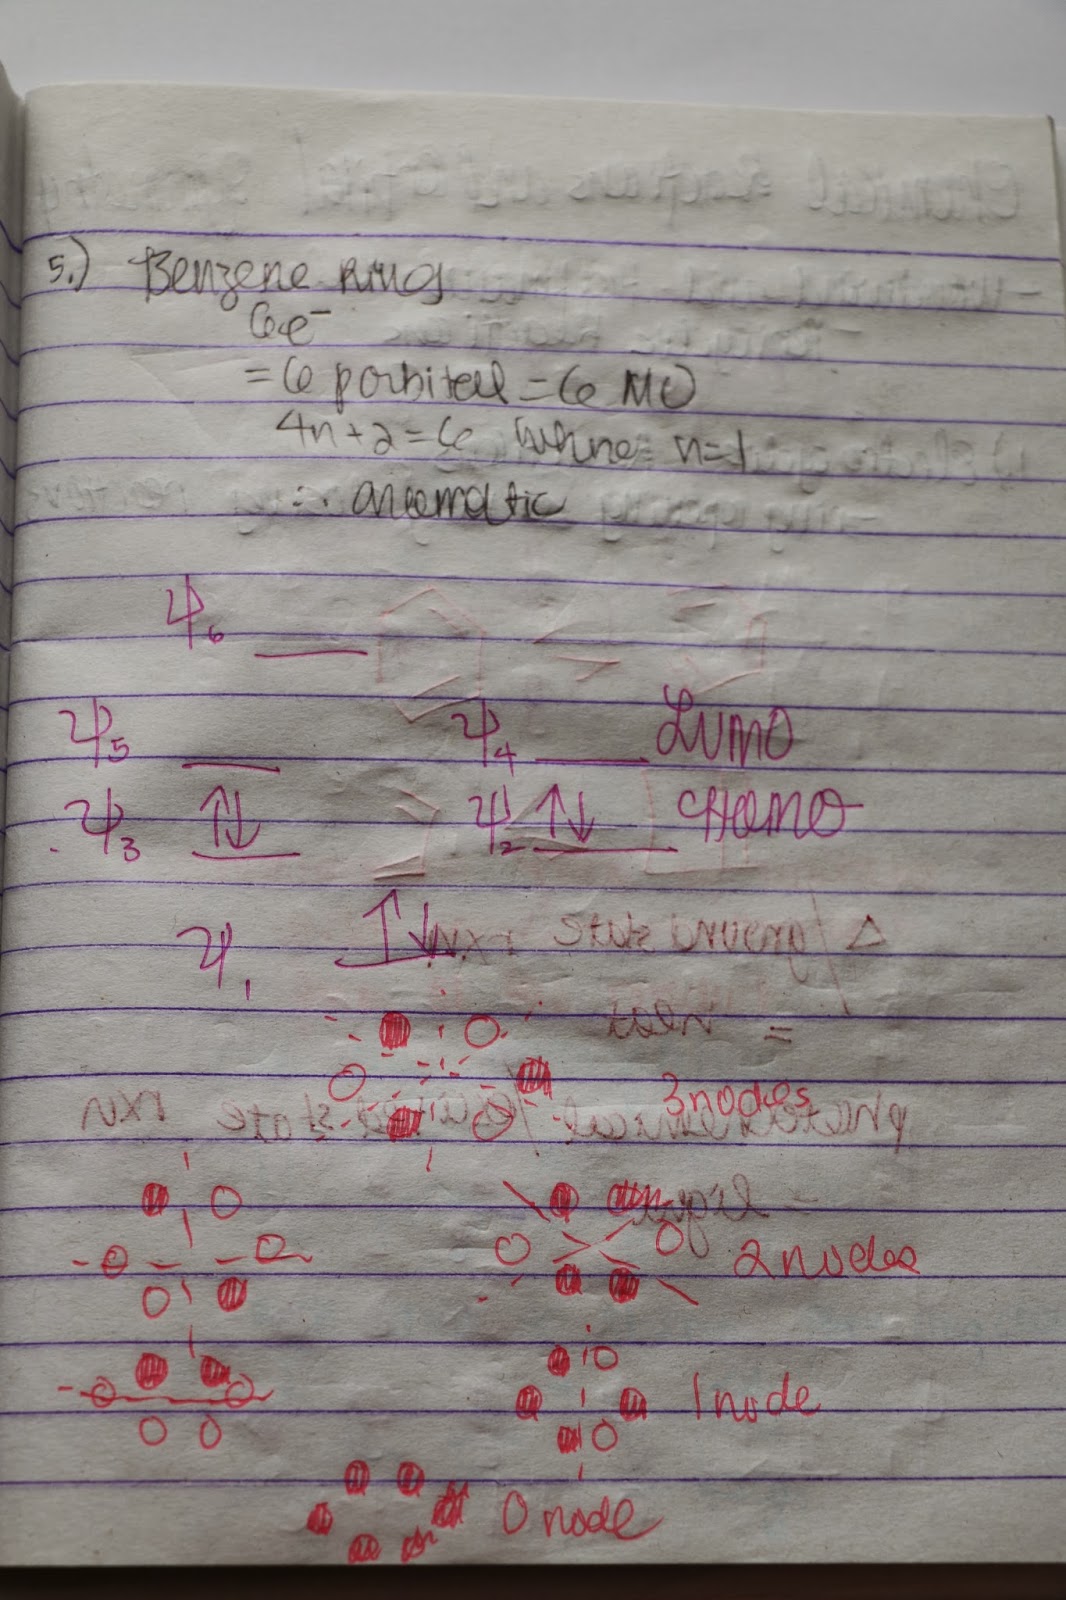 5.) Benzene ring
6e⁻
= 6 p orbital = 6 MO
4n+2=6 where n=1
∴ aromatic
ψ₆
ψ₅ ψ₄ LUMO
ψ₃ ↑↓ ψ₂ ↑↓ HOMO
ψ₁ ↑↓
3 nodes
2 nodes
1 node
0 node